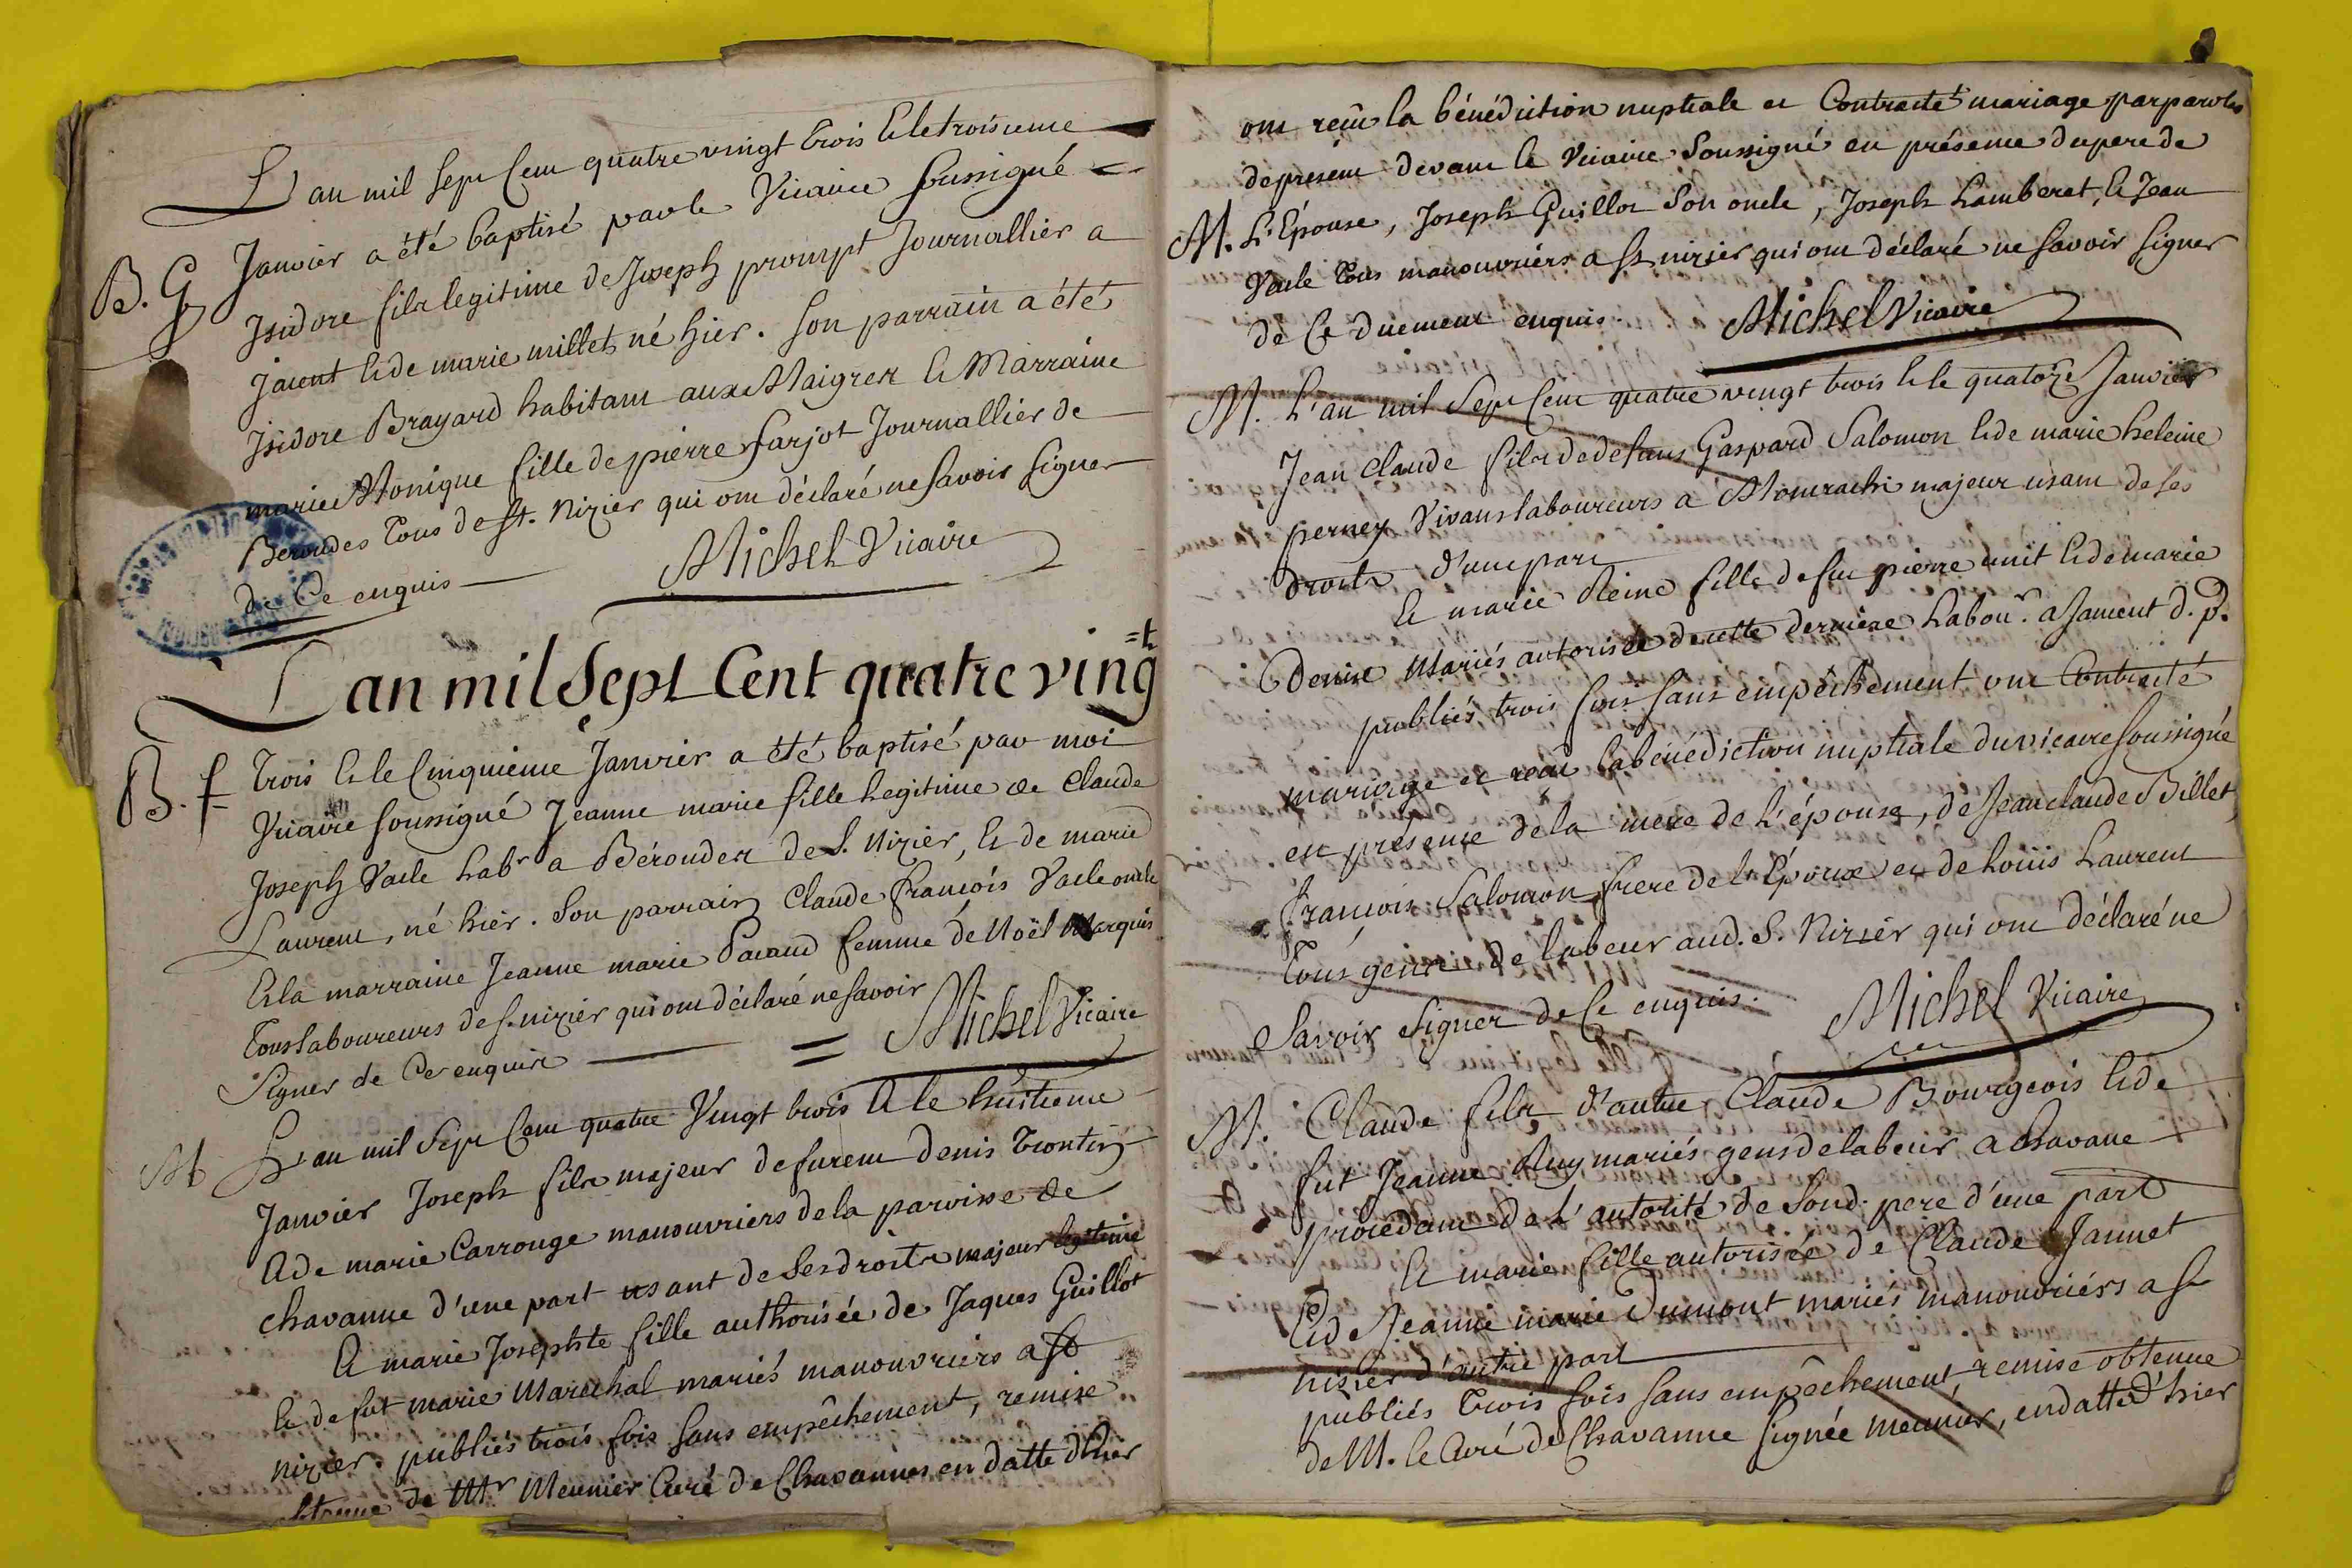 L'an mil sept Cent quatre vingt trois & le troisieme
B. G Janvier a été baptisé par le Vicaire soussigné =
Isidore fils legitime de Joseph prompt Journallier a
Jaient & de marie millet, né hier. son parrain a été
Isidore Brayard habitant aux Maigres & Marraine
marie Monique fille de pierre farjot Journallier de
Beroudes Tous de St. Nizier qui ont déclaré ne savoir signer
de Ce enquis
Michel Vicaire
L'an mil Sept Cent quatre ving=t
B. f Trois & le Cinquieme Janvier a été baptisé par moi
Vicaire soussigné Jeanne marie fille Legitime de Claude
Joseph Vacle Labr a Béroudes de S. Nizier, & de marie
Laurent, né hier. Son parrain Claude françois Vacle oncle
& la marraine Jeanne marie Pacaud femme de Noël Marquis
Tous laboureurs de S. nizier qui ont déclaré ne savoir
Signer de Ce enquis = Michel Vicaire
M L'an mil Sept Cent quatre Vingt trois & le huitieme
Janvier Joseph fils majeur de furent Denis Trontin
& de marie Carrouge manouvriers de la paroisse de
chavanne d'une part usant de Ses droits majeur legitime
& marie Josephte fille authorisée de Jaques Guillot
& de fut marie Marechal mariés manouvriers a St
nizier. publiés trois fois sans empêchement, remise
obtenue de Mr Meunier Curé de Chavannes en datte d'hier
ont reçu la bénédiction nuptiale et Contracté mariage par paroles
de présent devant le Vicaire Soussigné en présence du pere de
M. L'Épouse, Joseph Guillot Son oncle, Joseph Lamberet, & Jean
Vacle Tous manouvriers a St nizier qui ont déclaré ne savoir signer
de Ce duement enquis. Michel Vicaire
M. L'an mil Sept Cent quatre vingt trois & le quatorze Janvier
Jean Claude fils de defunt Gaspard Salomon & de marie heleine
perney Vivans laboureurs a majeur usant de ses
droits d'une part
& marie Reine fille de feu pierre unit & de marie
Denise Mariés autorisée de cette derniere Labour. a Jament d. p.
publiés trois fois sans empêchement ont Contracté
mariage et reçu la bénédiction nuptiale du vicaire soussigné
en présence de la mere de l'épouse, de Jean claude Billet,
françois Salomon frere de l'Époux et de Loüis Laurent
Tous gens de labeur aud. S. Nizier qui ont déclaré ne
Savoir Signer de Ce enquis. Michel Vicaire
M. Claude fils d'autre Claude Bourgeois & de
fut Jeanne Ruy mariés gens de labeur a Chavane
procédant de l'autorité de Sond. pere d'une part
& marie fille autorisée de Claude Jannet
& de Jeanne marie Dumont mariés manouvriérs a St
nizier d'autre part
publiés Trois fois sans empêchement, remise obtenue
de M. le Curé de Chavanne Signée meunier, en datte d'hier